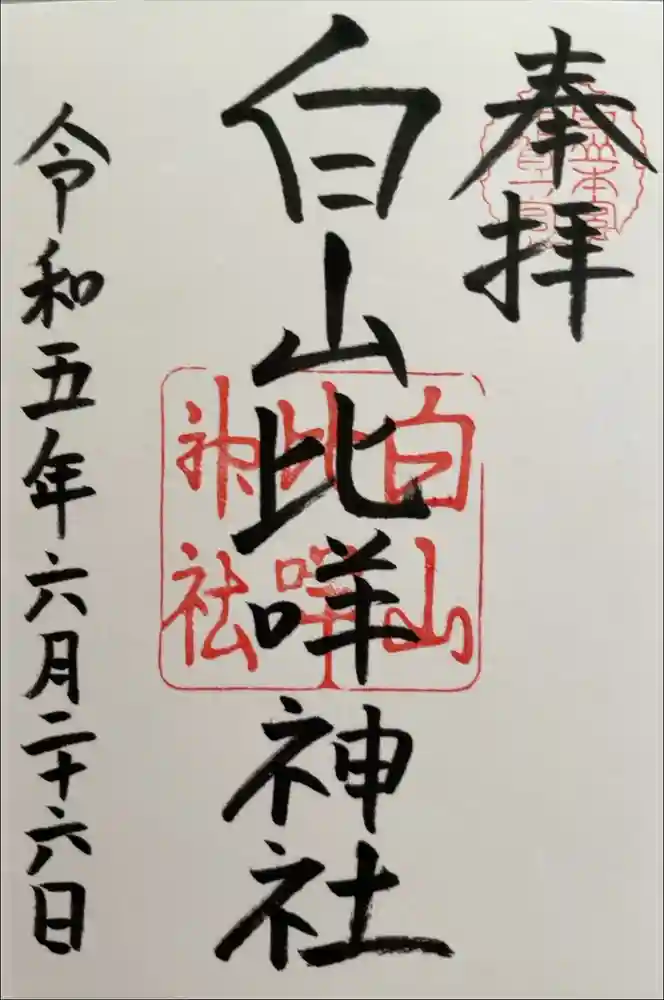 奉拝
白山比咩神社
令和五年六月二十六日
白山
比咩
神社